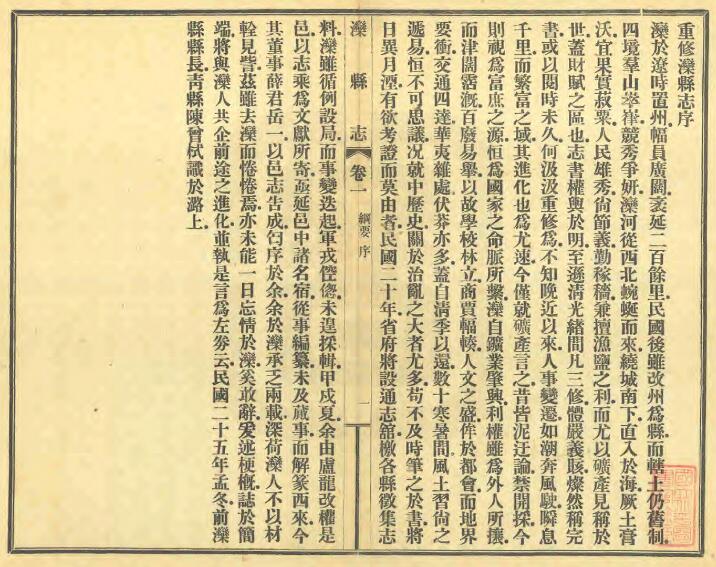 重修灤縣志序
灤於遼時置州幅員廣闊袤延二百餘里民國後雖改州爲縣而轄土仍舊制
四境羣山崒嵂競秀爭妍灤河從西北蜿蜒而來繞城南下直入於海厥土膏
沃宜果實菽粟人民雄秀尙節義勤稼穡兼擅漁鹽之利而尤以礦產見稱於
世蓋財賦之區也志書權輿於明至遜清光緒間凡三修體嚴義賅燦然稱完
書或以閱時未久何汲汲重修爲不知晚近以來人事變遷如潮奔風駛瞬息
千里而繁富之域其進化也爲尤速今僅就礦產言之昔皆泥迂論禁開採今
則視爲富庶之源恒爲國家之命脈所繫灤自鑛業肇興利權雖爲外人所攘
而津閭霑漑百廢易舉以故學校林立商賈輻輳人文之盛侔於都會而地界
要衝交通四達華夷雜處伏莽亦多蓋自清季以還數十寒暑間風土習尙之
遞易恒不可思議况就中歷史關於治亂之大者尤多苟不及時筆之於書將
日異月湮有欲考證而莫由者民國二十年省府將設通志舘檄各縣徵集志
灤縣志
卷一
綱要 序
一
料灤雖循例設局而事變迭起軍戎倥傯未遑採輯甲戌夏余由盧龍改權是
邑以志乘爲文獻所寄亟延邑中諸名宿從事編纂未及蕆事而解篆西來今
其董事薛君岳一以邑志吿成匄序於余余於灤承乏兩載深荷灤人不以材
輇見訾茲雖去灤而惓惓焉亦未能一日忘情於灤奚敢辭爰述梗概誌於簡
端將與灤人共企前途之進化並執是言爲左劵云民國二十五年孟冬前灤
縣縣長靑縣陳曾栻識於潞上